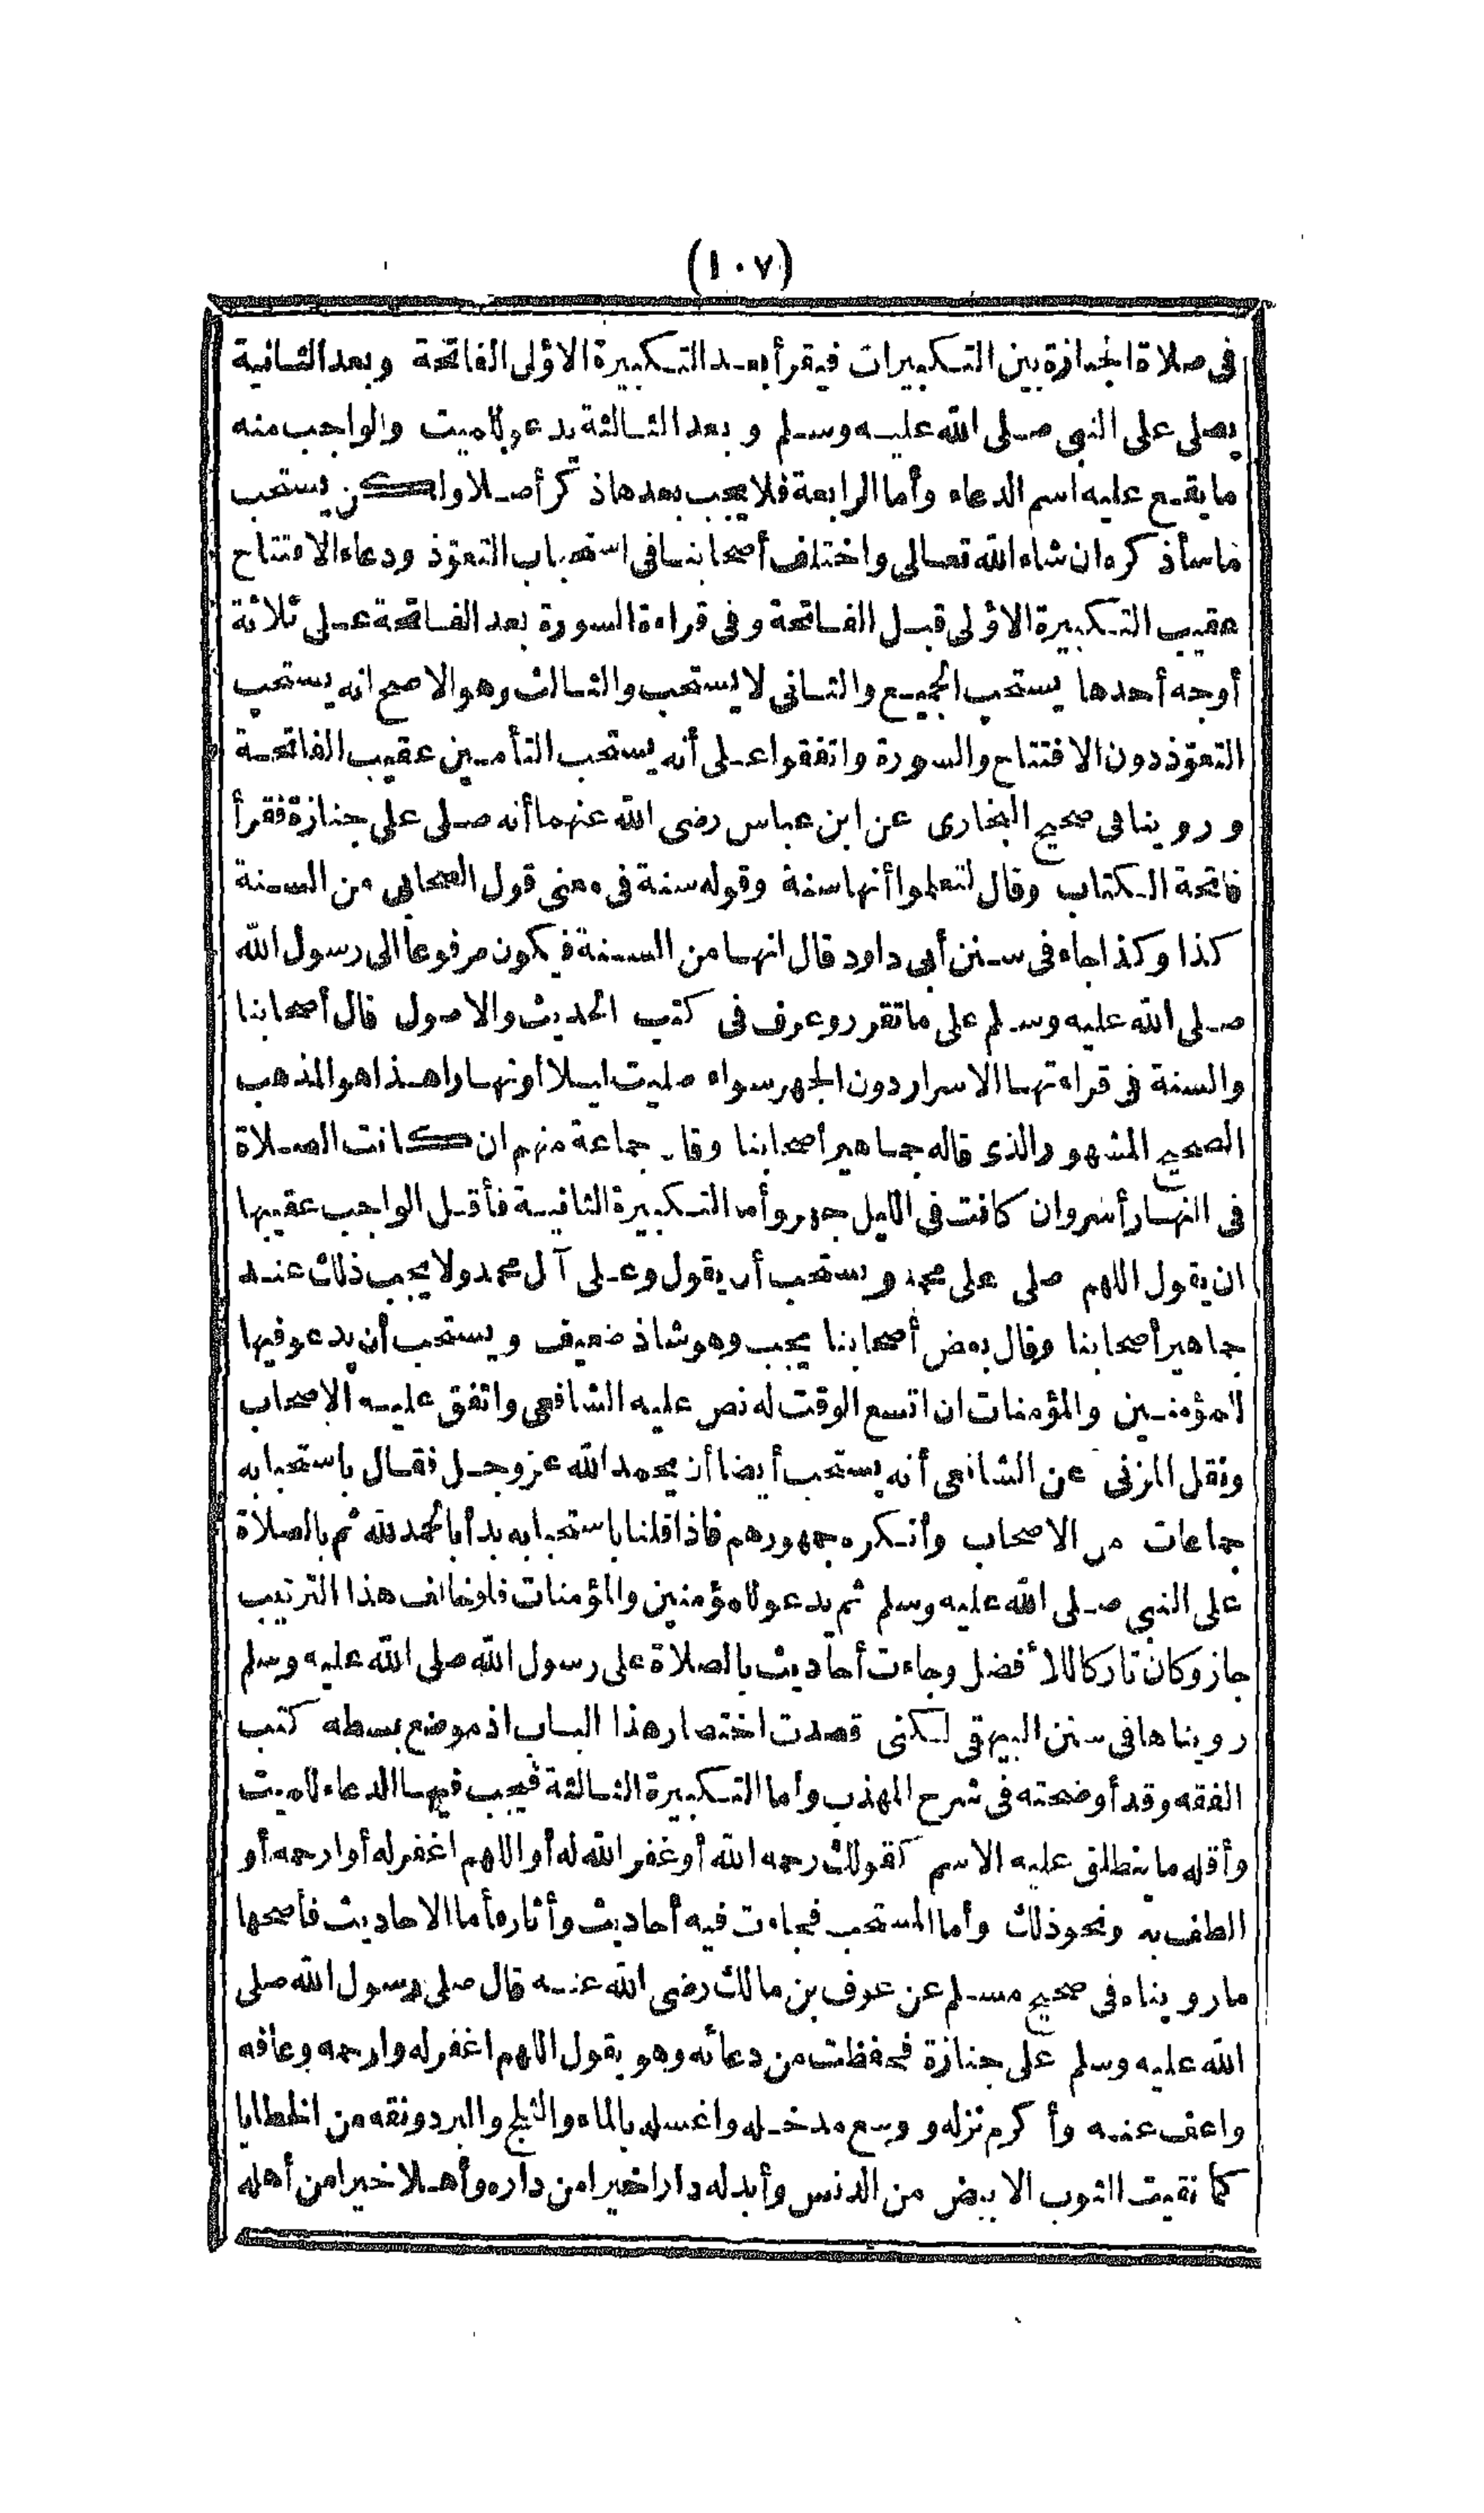 (١٠٧)
فى صلاة الجنازة بين التكبيرات فيقرأ بعد التكبيرة الاولى الفاتحة وبعد الثانية
يصلى على النبى صلى الله عليه وسلم وبعد الثالثة يدعو للميت والواجب منه
ما يقع عليه اسم الدعاء وأما الرابعة فلا يجب بعدها ذكر أصلا ولكن يستحب
ما سأذكره ان شاء الله تعالى واختلف أصحابنا فى استحباب التعوّذ ودعاء الافتتاح
عقيب التكبيرة الاولى قبل الفاتحة وفى قراءة السورة بعد الفاتحة على ثلاثة
أوجه أحدها يستحب الجميع والثانى لا يستحب والثالث وهو الاصح انه يستحب
التعوّذ دون الافتتاح والسورة واتفقوا على أنه يستحب التأمين عقيب الفاتحة
وروينا فى صحيح البخارى عن ابن عباس رضى الله عنهما أنه صلى على جنازة فقرأ
فاتحة الكتاب وقال لتعلموا أنها سنة وقوله سنة فى معنى قول الصحابى من السنة
كذا وكذا جاء فى سنن أبى داود قال انها من السنة فيكون مرفوعا الى رسول الله
صلى الله عليه وسلم على ما تقرر وعرف فى كتب الحديث والاصول قال أصحابنا
والسنة فى قراءتها الاسرار دون الجهر سواء صليت ليلا أو نهارا هذا هو المذهب
الصحيح المشهور والذى قاله جماهير أصحابنا وقال جماعة منهم ان كانت الصلاة
فى النهار أسر وان كانت فى الليل جهر وأما التكبيرة الثانية فأقل الواجب عقيبها
ان يقول اللهم صلى على محمد ويستحب أن يقول وعلى آل محمد ولا يجب ذلك عند
جماهير أصحابنا وقال بعض أصحابنا يجب وهو شاذ ضعيف ويستحب أن يدعو فيها
للمؤمنين والمؤمنات ان اتسع الوقت له نص عليه الشافعى واتفق عليه الاصحاب
ونقل المزنى عن الشافعى أنه يستحب أيضا أن يحمد الله عز وجل فقال باستحبابه
جماعات من الاصحاب وأنكره جمهورهم فاذا قلنا باستحبابه بدأ بالحمد لله ثم بالصلاة
على النبى صلى الله عليه وسلم ثم يدعو للمؤمنين والمؤمنات فلو خالف هذا الترتيب
جاز وكان تاركا للأفضل وجاءت أحاديث بالصلاة على رسول الله صلى الله عليه وسلم
رويناها فى سنن البيهقى لكنى قصدت اختصار هذا الباب اذ موضع بسطه كتب
الفقه وقد أوضحته فى شرح المهذب وأما التكبيرة الثالثة فيجب فيها الدعاء للميت
وأقله ما ينطلق عليه الاسم كقولك رحمه الله أو غفر الله له أو اللهم اغفر له أو ارحمه أو
الطف به ونحو ذلك وأما المستحب فجاءت فيه أحاديث وأثار فأما الاحاديث فأصحها
ما رويناه فى صحيح مسلم عن عوف بن مالك رضى الله عنه قال صلى رسول الله صلى
الله عليه وسلم على جنازة فحفظت من دعائه وهو يقول اللهم اغفر له وارحمه وعافه
واعف عنه وأكرم نزله ووسع مدخله واغسله بالماء والثلج والبرد ونقه من الخطايا
كما نقيت الثوب الابيض من الدنس وأبدله دارا خيرا من داره وأهلا خيرا من أهله